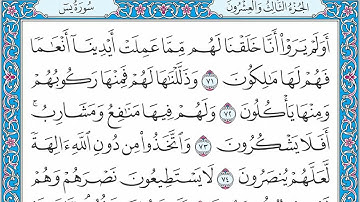 الجزء الثالث والعشرون
سورة يس
أَوَلَمْ يَرَوْا أَنَّا خَلَقْنَا لَهُم مِّمَّا عَمِلَتْ أَيْدِينَا أَنْعَـٰمًا
فَهُمْ لَهَا مَـٰلِكُونَ ٧١ وَذَلَّلْنَـٰهَا لَهُمْ فَمِنْهَا رَكُوبُهُمْ
وَمِنْهَا يَأْكُلُونَ ٧٢ وَلَهُمْ فِيهَا مَنَـٰفِعُ وَمَشَارِبُ ۚ
أَفَلَا يَشْكُرُونَ ٧٣ وَاتَّخَذُوا مِن دُونِ اللَّهِ ءَالِهَةً
لَّعَلَّهُمْ يُنصَرُونَ ٧٤ لَا يَسْتَطِيعُونَ نَصْرَهُمْ وَهُمْ